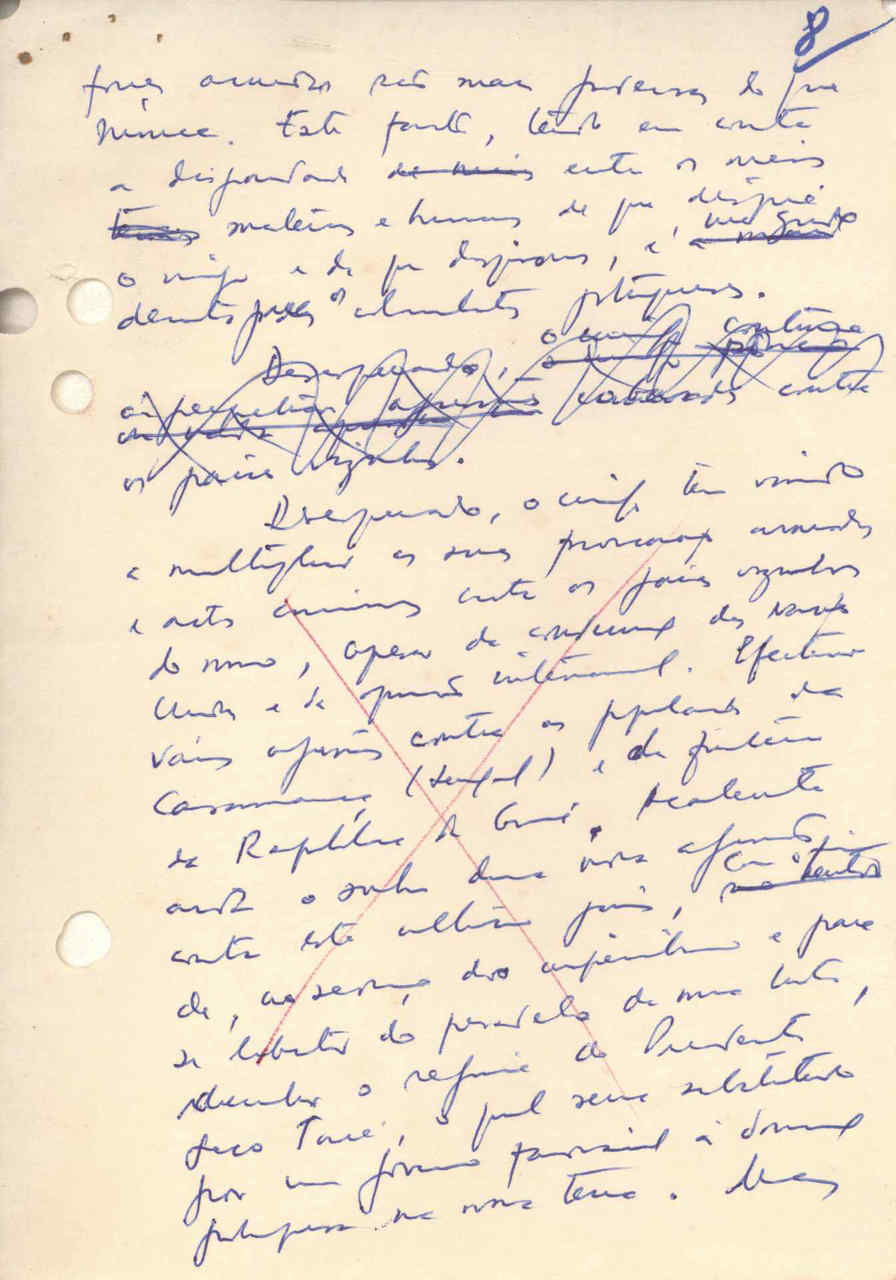 8
forças armadas são mais poderosas do que
nunca. Este facto, tendo em conta
a disparidade de meios entre os meios
materiais e humanos de que dispõe
o inimigo e de que dispomos, é a maior uma grande
derrota para os colonialistas portugueses.
Desesperado, o inimigo continua
a perpetrar agressões contra
os países vizinhos.
Desesperado, o inimigo tem vindo
a multiplicar as suas provocações armadas
e actos criminosos contra os países vizinhos
do nosso, apesar da condenação das Nações
Unidas e da opinião internacional. Efectuou
várias agressões contra as populações da
Casamança (Senegal) e da fronteira
da República da Guiné. Recentemente
ainda o sonho duma nova agressão com o fim
contra este último país,
de, ao serviço dos imperialistas e para
se libertar do pesadelo da nossa luta,
derrubar o regime do Presidente
Seco Touré, o qual seria substituído
por um governo favorável à dominação
portuguesa na nossa terra. Mas